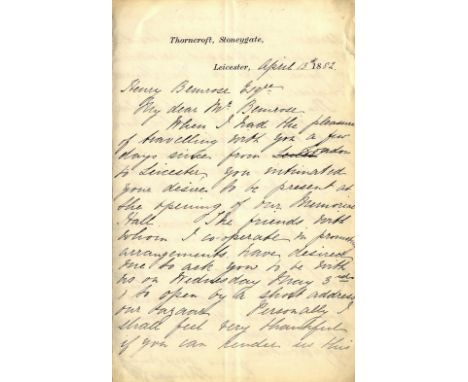 Thorncroft, Stoneygate,
Leicester, April 13th 1882
Henry Bemrose Esqre
My dear Mr. Bemrose
When I had the pleasure
of travelling with you a few
days since from London
to Leicester, you intimated
your desire to be present at
the opening of our Memorial
Hall The friends with
whom I co-operate in
arrangements have desired
me to ask you to be with
us on Wednesday May 3rd
to open by a short address
our bazaar Personally I
shall feel very thankful
if you can render us this